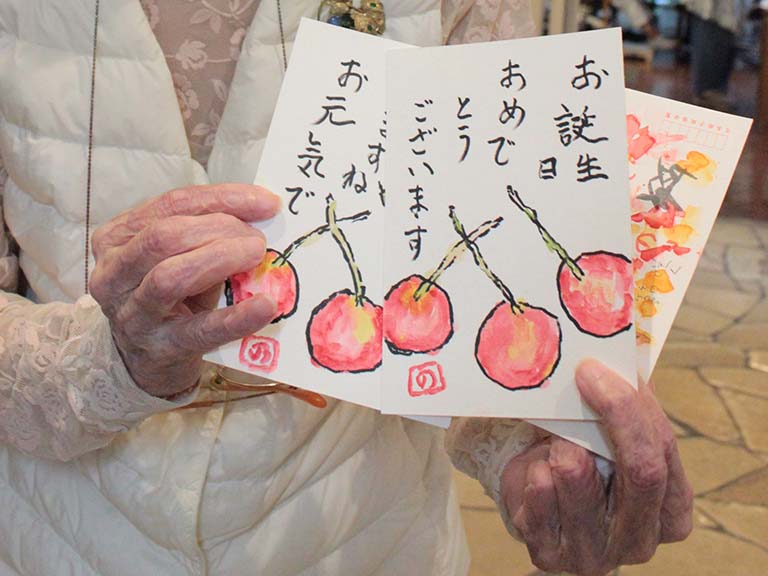 お誕生日
おめでとう
ございます
の
お元気で
すね
の